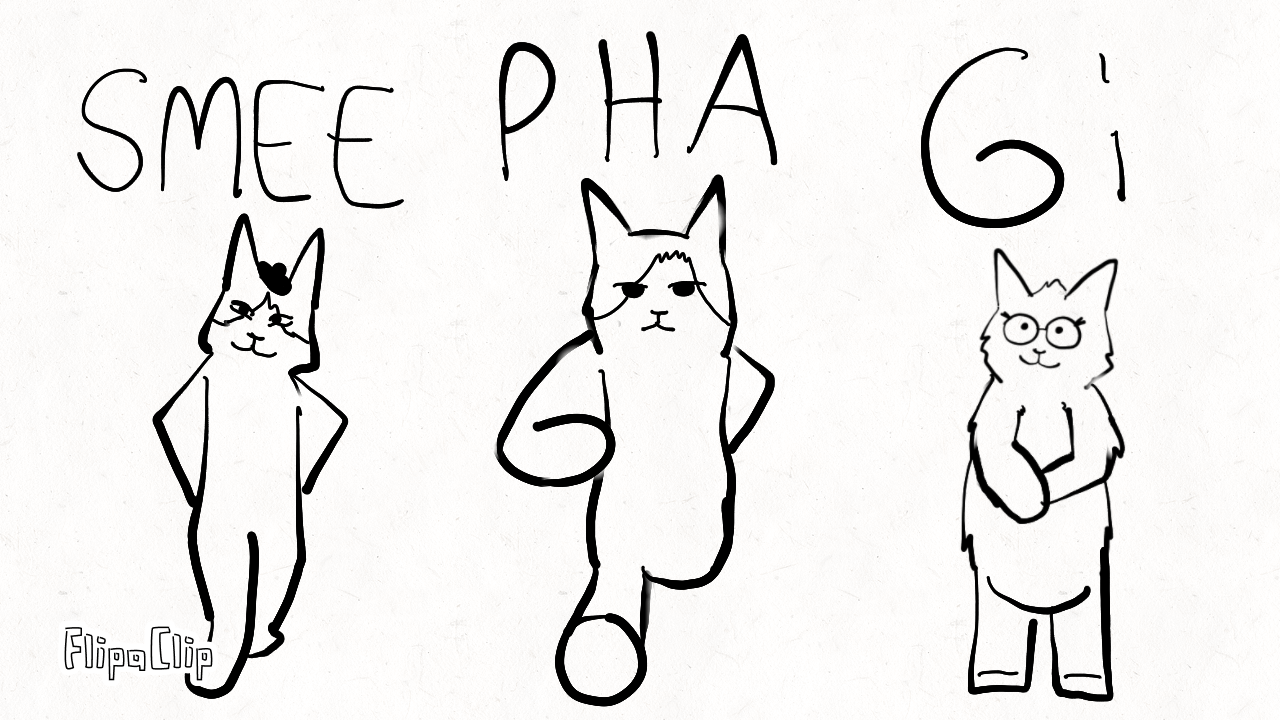 SMEE PHA Gi
FlipaClip